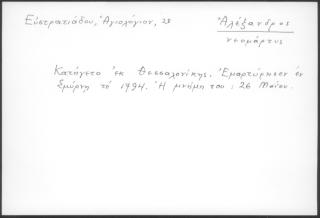 Εὐστρατιάδου, Ἁγιολόγιον, 28
Ἀλέξανδρος
νεομάρτυς
Κατήγετο ἐκ Θεσσαλονίκης. Ἐμαρτύρησεν ἐν
Σμύρνῃ τό 1794. Ἡ μνήμη του : 26 Μαΐου.